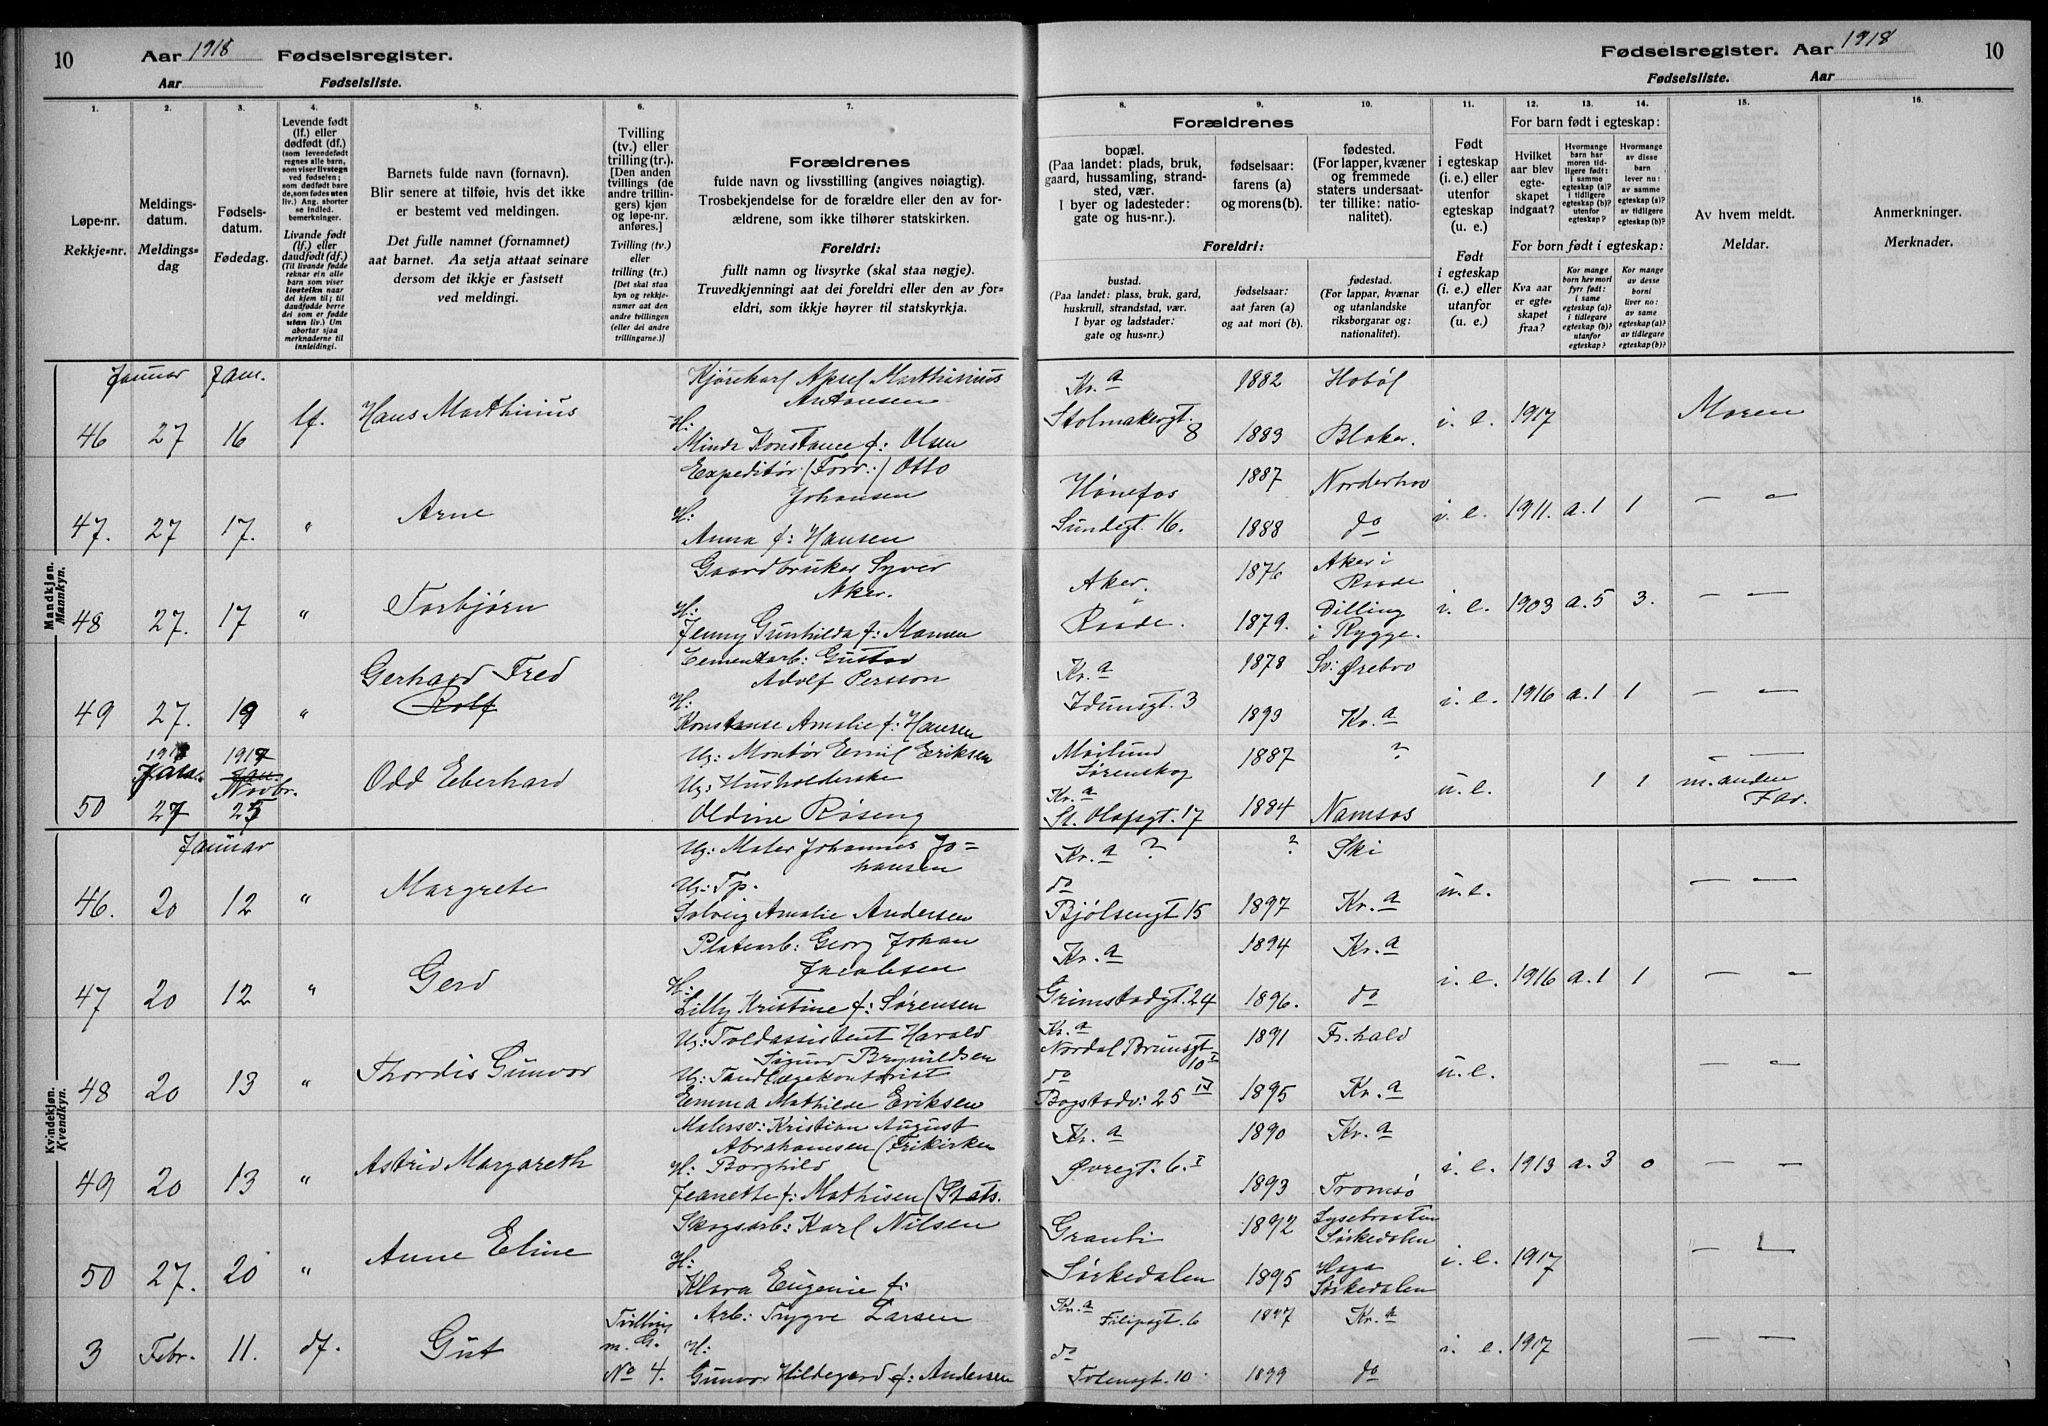 10 Aar 1918 Fødselsregister.
Aar Fødselsliste.
Fødselsregister. Aar 1918 10
Fødselsliste. Aar
1. 2. 3. 4. 5. 6. 7. 8. 9. 10. 11. 12. 13. 14. 15. 16.
Løpe-nr.
Rekkje=nr.
Meldings-
datum.
Meldings=
dag
Fødsels-
datum.
Fødedag.
Levende født
(lf.) eller
dødfødt (df.)
(som levendefødt
regnes alle barn,
som viser livstegn
ved fødselen;
som dødfødt bare
de, som fødes uten
liv.) Ang. aborter
se indled.
bemerkninger.
Livande født
(lf.) eller
daudfødt (df.)
(Til livande fødde
reknar ein alle
barn som viser
livsteikn naar
dei kjem til; til
daudfødde berre
dei som er fødde
utan liv.) Um
abortar sjaa
merknaderne til
innleidingi.
Barnets fulde navn (fornavn).
Blir senere at tilføie, hvis det ikke
er bestemt ved meldingen.
Det fulle namnet (fornamnet)
aat barnet. Aa setja attaat seinare
dersom det ikkje er fastsett
ved meldingi.
Tvilling
(tv.) eller
trilling (tr.).
[Den anden
tvillings (de
andre trillin-
gers) kjøn
og løpe-nr.
anføres.]
Tvilling (tv.)
eller
trilling (tr.)
[Det skal staa
kyn og rekkje-
numer aat den
andre tvillingen
(eller dei andre
trillingarne.)]
Forældrenes
fulde navn og livsstilling (angives nøiagtig).
Trosbekjendelse for de forældre eller den av for-
ældrene, som ikke tilhører statskirken.
Foreldri:
fullt namn og livsyrke (skal staa nøgje).
Truvedkjenningi aat dei foreldri eller den av for=
eldri, som ikkje høyrer til statskyrkja.
Forældrenes
bopæl.
(Paa landet: plads, bruk,
gaard, hussamling, strand-
sted, vær.
I byer og ladesteder:
gate og hus-nr.).
fødselsaar:
farens (a)
og morens(b).
fødested.
(For lapper, kvæner
og fremmede
staters undersaat-
ter tillike: natio-
nalitet).
Foreldri:
bustad.
(Paa landet: plass, bruk, gard,
huskrull, strandstad, vær.
I byar og ladstader:
gate og hus=nr.)
fødselsaar:
aat faren (a)
og aat mori (b).
fødestad.
(For lappar, kvænar
og utanlandske
riksborgarar og:
nationalitet).
Født
i egteskap
(i. e.) eller
utenfor
egteskap
(u. e.)
Født
i egteskap
(i. e.) eller
utanfor
egteskap
(u. e.)
For barn født i egteskap:
Hvilket
aar blev
egte-
skapet
indgaat?
Hvormange
barn har
moren tid-
ligere født:
i samme
egteskap (a)?
i tidligere
egteskap (b)?
utenfor
egteskap?
Hvormange
av disse
barn
lever nu:
av samme
egteskap (a)?
av tidligere
egteskap (b)?
For born født i egteskap:
Kva aar
er egte-
skapet
fraa?
Kor mange
barn hev mori
fyrr født:
i same
egteskap (a)?
i tidlegare
egteskap (b)?
utanfor
egteskap?
Kor mange
av desse
borni
liver no:
av same
egteskap (a)?
av tidlegare
egteskap (b)?
Av hvem meldt.
Meldar.
Anmerkninger.
Merknader.
Mandkjøn.
Mannkyn.
Januar Jan.
46 27 16 lf. Hans Marthinius
Kjørekarl Aksel Marthinius
Antonsen
H:
Minda Konstance f: Olsen
Kr.a 1882 Hobøl
Stolmakergt. 8 1883 Blaker. i. e. 1917 Moren
47. 27 17. " Arne
Expeditør (Forr:) Otto
Johansen
H:
Anna f: Hansen
Hønefos 1887 Norderhov
Sundgt. 16. 1888 do i. e. 1911. a.1 1 — "
48 27. 17 " Torbjørn
Gaardbruker Syver
Aker.
H:
Jenny Gunhilda f: Monsen
Aker. 1876 Aker i Raade
Raade. 1879. Dilling i Rygge. i. e. 1903 a.5 3. — —
49 27. 19 " Gerhard Fred
Rolf
Cementarb: Gustav
Adolf Persson
H:
Konstanse Amalie f: Hansen
Kr.a 1878 Sv: Ørebro
Idunsgt. 3 1893 Kr.a i. e. 1916 a.1 1 — —
1918 1917
Jan. Jan. Novbr.
50 27 25 Odd Eberhard
Ug: Montør Emil Eriksen
Ug: Husholderske
Oldine Røseng
Mailund
Sørenskog 1887 ?
Kr.a
St. Olafsgt. 17 1884 Namsos u. e. 1 1 — m. anden
Far.
Kvindekjøn.
Kvendkyn.
Januar
46. 20 12 " Margrete
Ug: Maler Johannes Jo=
hansen
Ug: Tp.
Solveig Amalie Andersen
Kr.a ? ? Ski
do
Bjølsengt 15 1897 Kr.a u. e. — —
47 20 12 " Gerd
Platearb: Georg Johan
Jacobsen
H:
Lilly Kristine f: Sørensen
Kr.a 1894 Kr.a
Grimstadgt. 24 1896. do i. e. 1916 a.1 1 — "
48 20 13 " Thordis Gunvor
Ug: Toldassistent Harald
Sigurd Brynildsen
Ug: Tandlægekontorist
Emma Mathilde Eriksen
Kr.a
Nordal Brunsgt 10 I 1891 Fr.hald
do
Bogstadv: 25 IV 1895 Kr.a u. e. — "
49 20 13 " Astrid Margareth
Malersv: Kristian August
Abrahamsen (Frikirken
H: Borghild
Jeanette f: Mathisen (Stats.
Kr.a 1890 Kr.a
Øvregt. 6. I 1893 Tromsø i. e. 1913 a.3 0 — —
50 27. 20 " Anne Eline
Skogsarb: Karl Nilsen
H:
Klara Eugenie f:
Granbi 1892 Lysebraaten
Sørkedalen
Sørkedalen 1895 Haga
Sørkedalen i. e. 1917
3 Febr. 11. df. Gut
Tvilling
m. G.
No 4.
Arb: Trygve Larsen
H:
Gunvor Hildegard f: Andersen
Kr.a
Filipsgt. 6 1897 Kr.a
do
Totensgt. 10. 1899 do i. e. 1917 — —